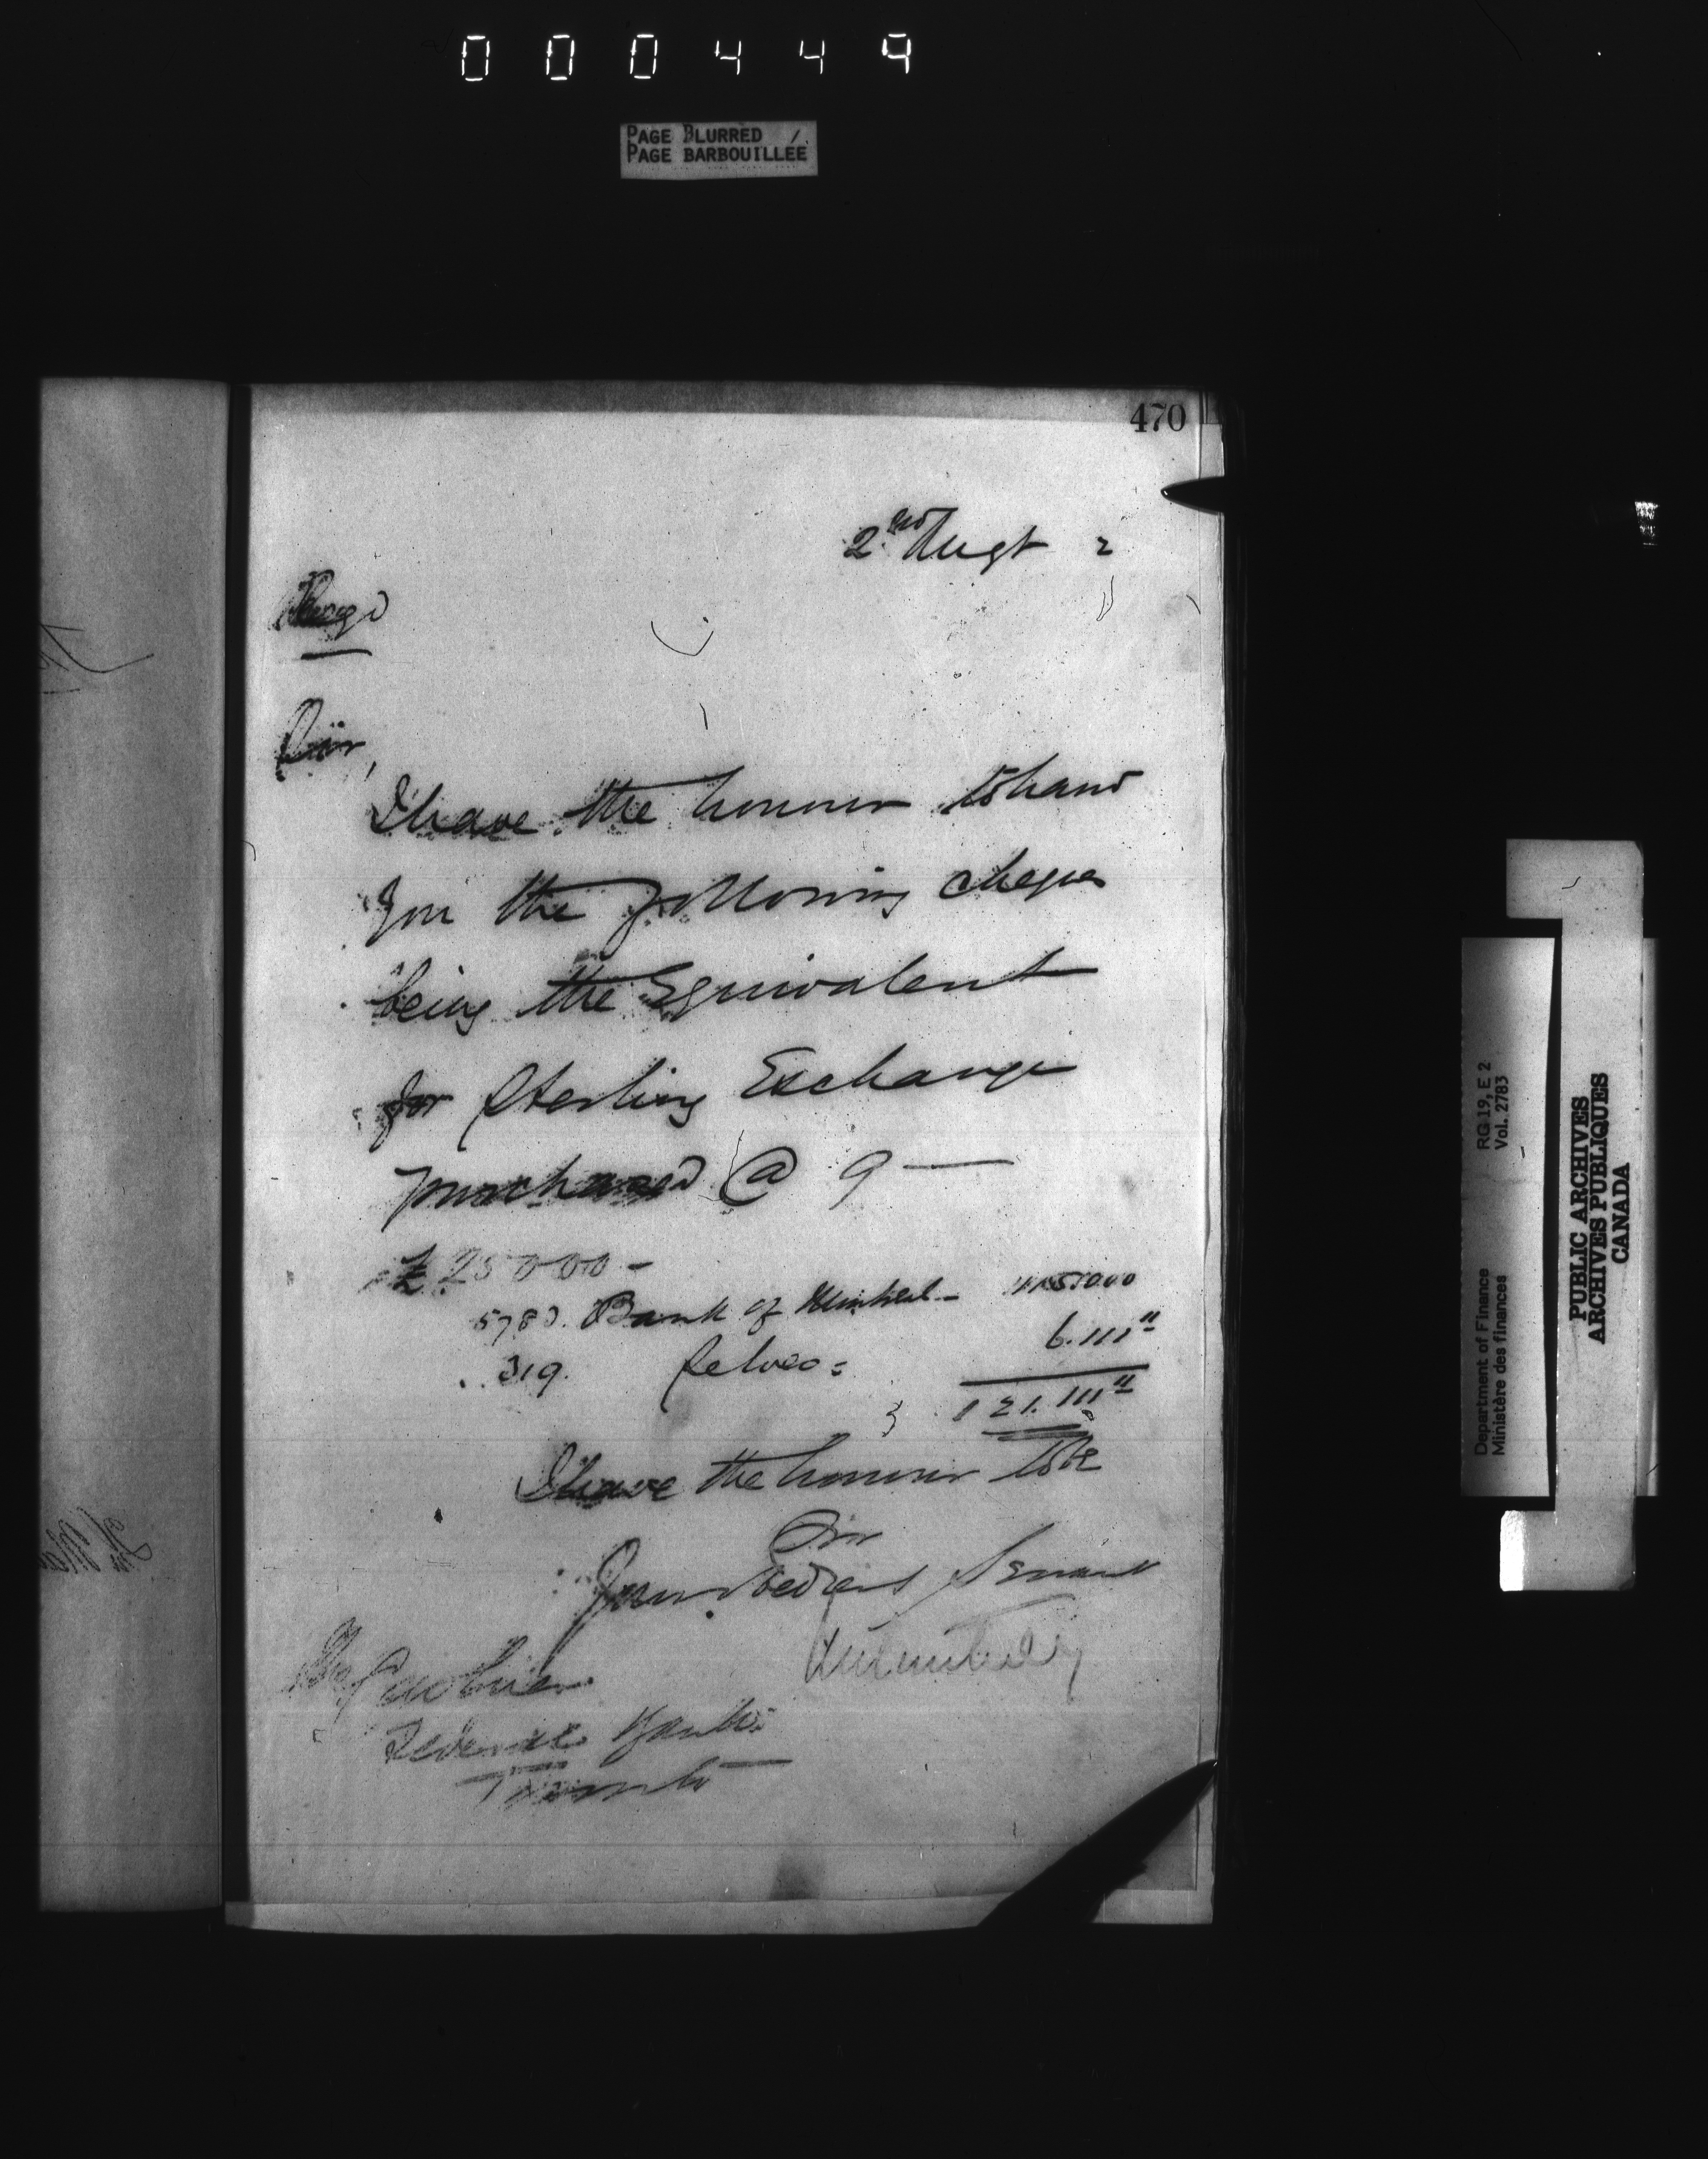 000449
PAGE BLURRED
PAGE BARBOUILLÉE
470
2nd Augt 2
Regd
Sir,
I have the honour to hand
you the following cheques
being the Equivalent
for Sterling Exchange
purchased @ 9 —
£25000 -
5780. Bank of Montreal - 115,000
319. Selves = 6.111 11
121.111 11
I have the honour to be
Sir
Your Obedient Servant
The Cashier
Federal Bank
Toronto
RG 19, E 2
Vol. 2783
Department of Finance
Ministère des finances
PUBLIC ARCHIVES
ARCHIVES PUBLIQUES
CANADA